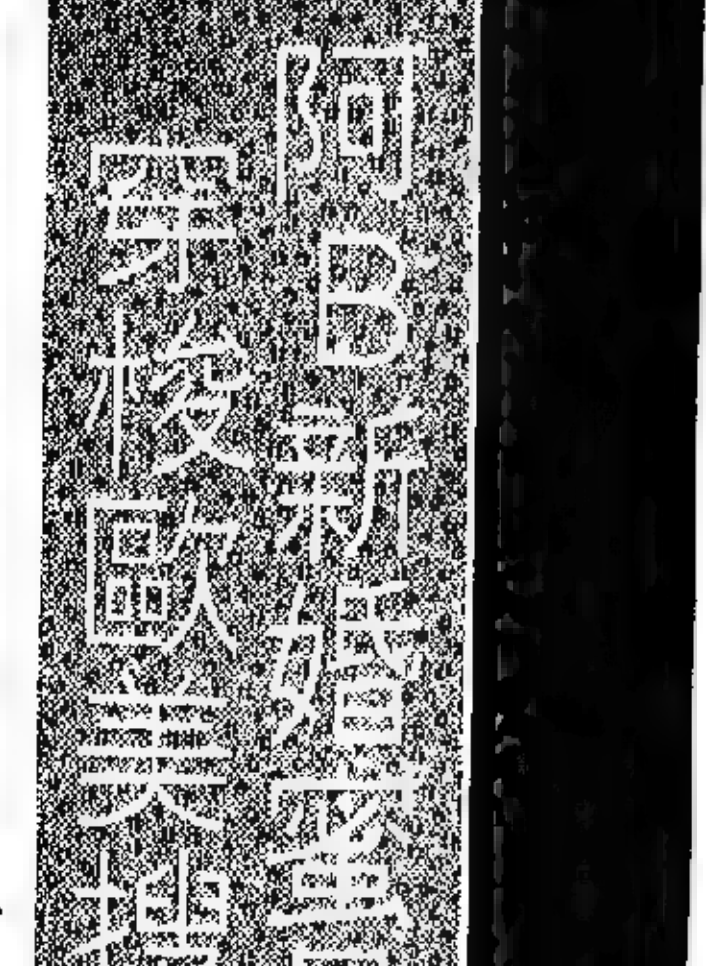 阿B新婚蜜
穿梭歐美搜